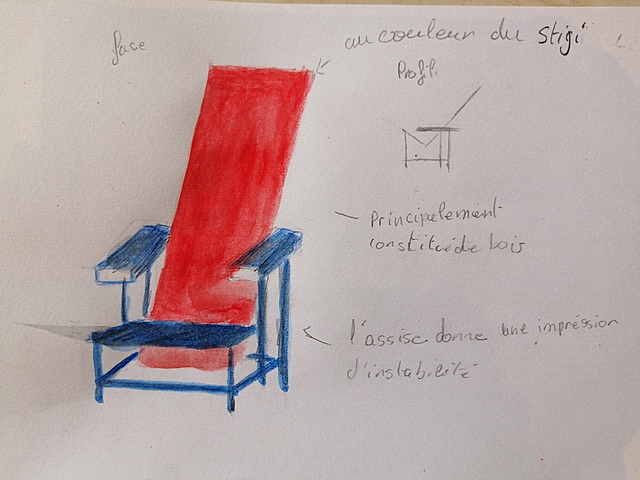 face
au couleur du Stigi
Profil
Principalement
constitué de bois
l'assise donne une impréssion
d'instabilité